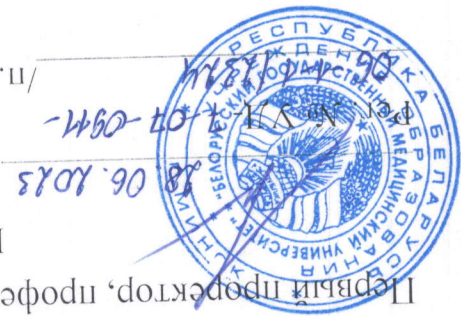 Первый проректор, профе
28.06.2023
Рег. № УД- 7-07-0911-
/2324 /п.
РЕСПУБЛИКА БЕЛАРУСЬ
УЧРЕЖДЕНИЕ ОБРАЗОВАНИЯ
"БЕЛОРУССКИЙ ГОСУДАРСТВЕННЫЙ МЕДИЦИНСКИЙ УНИВЕРСИТЕТ"